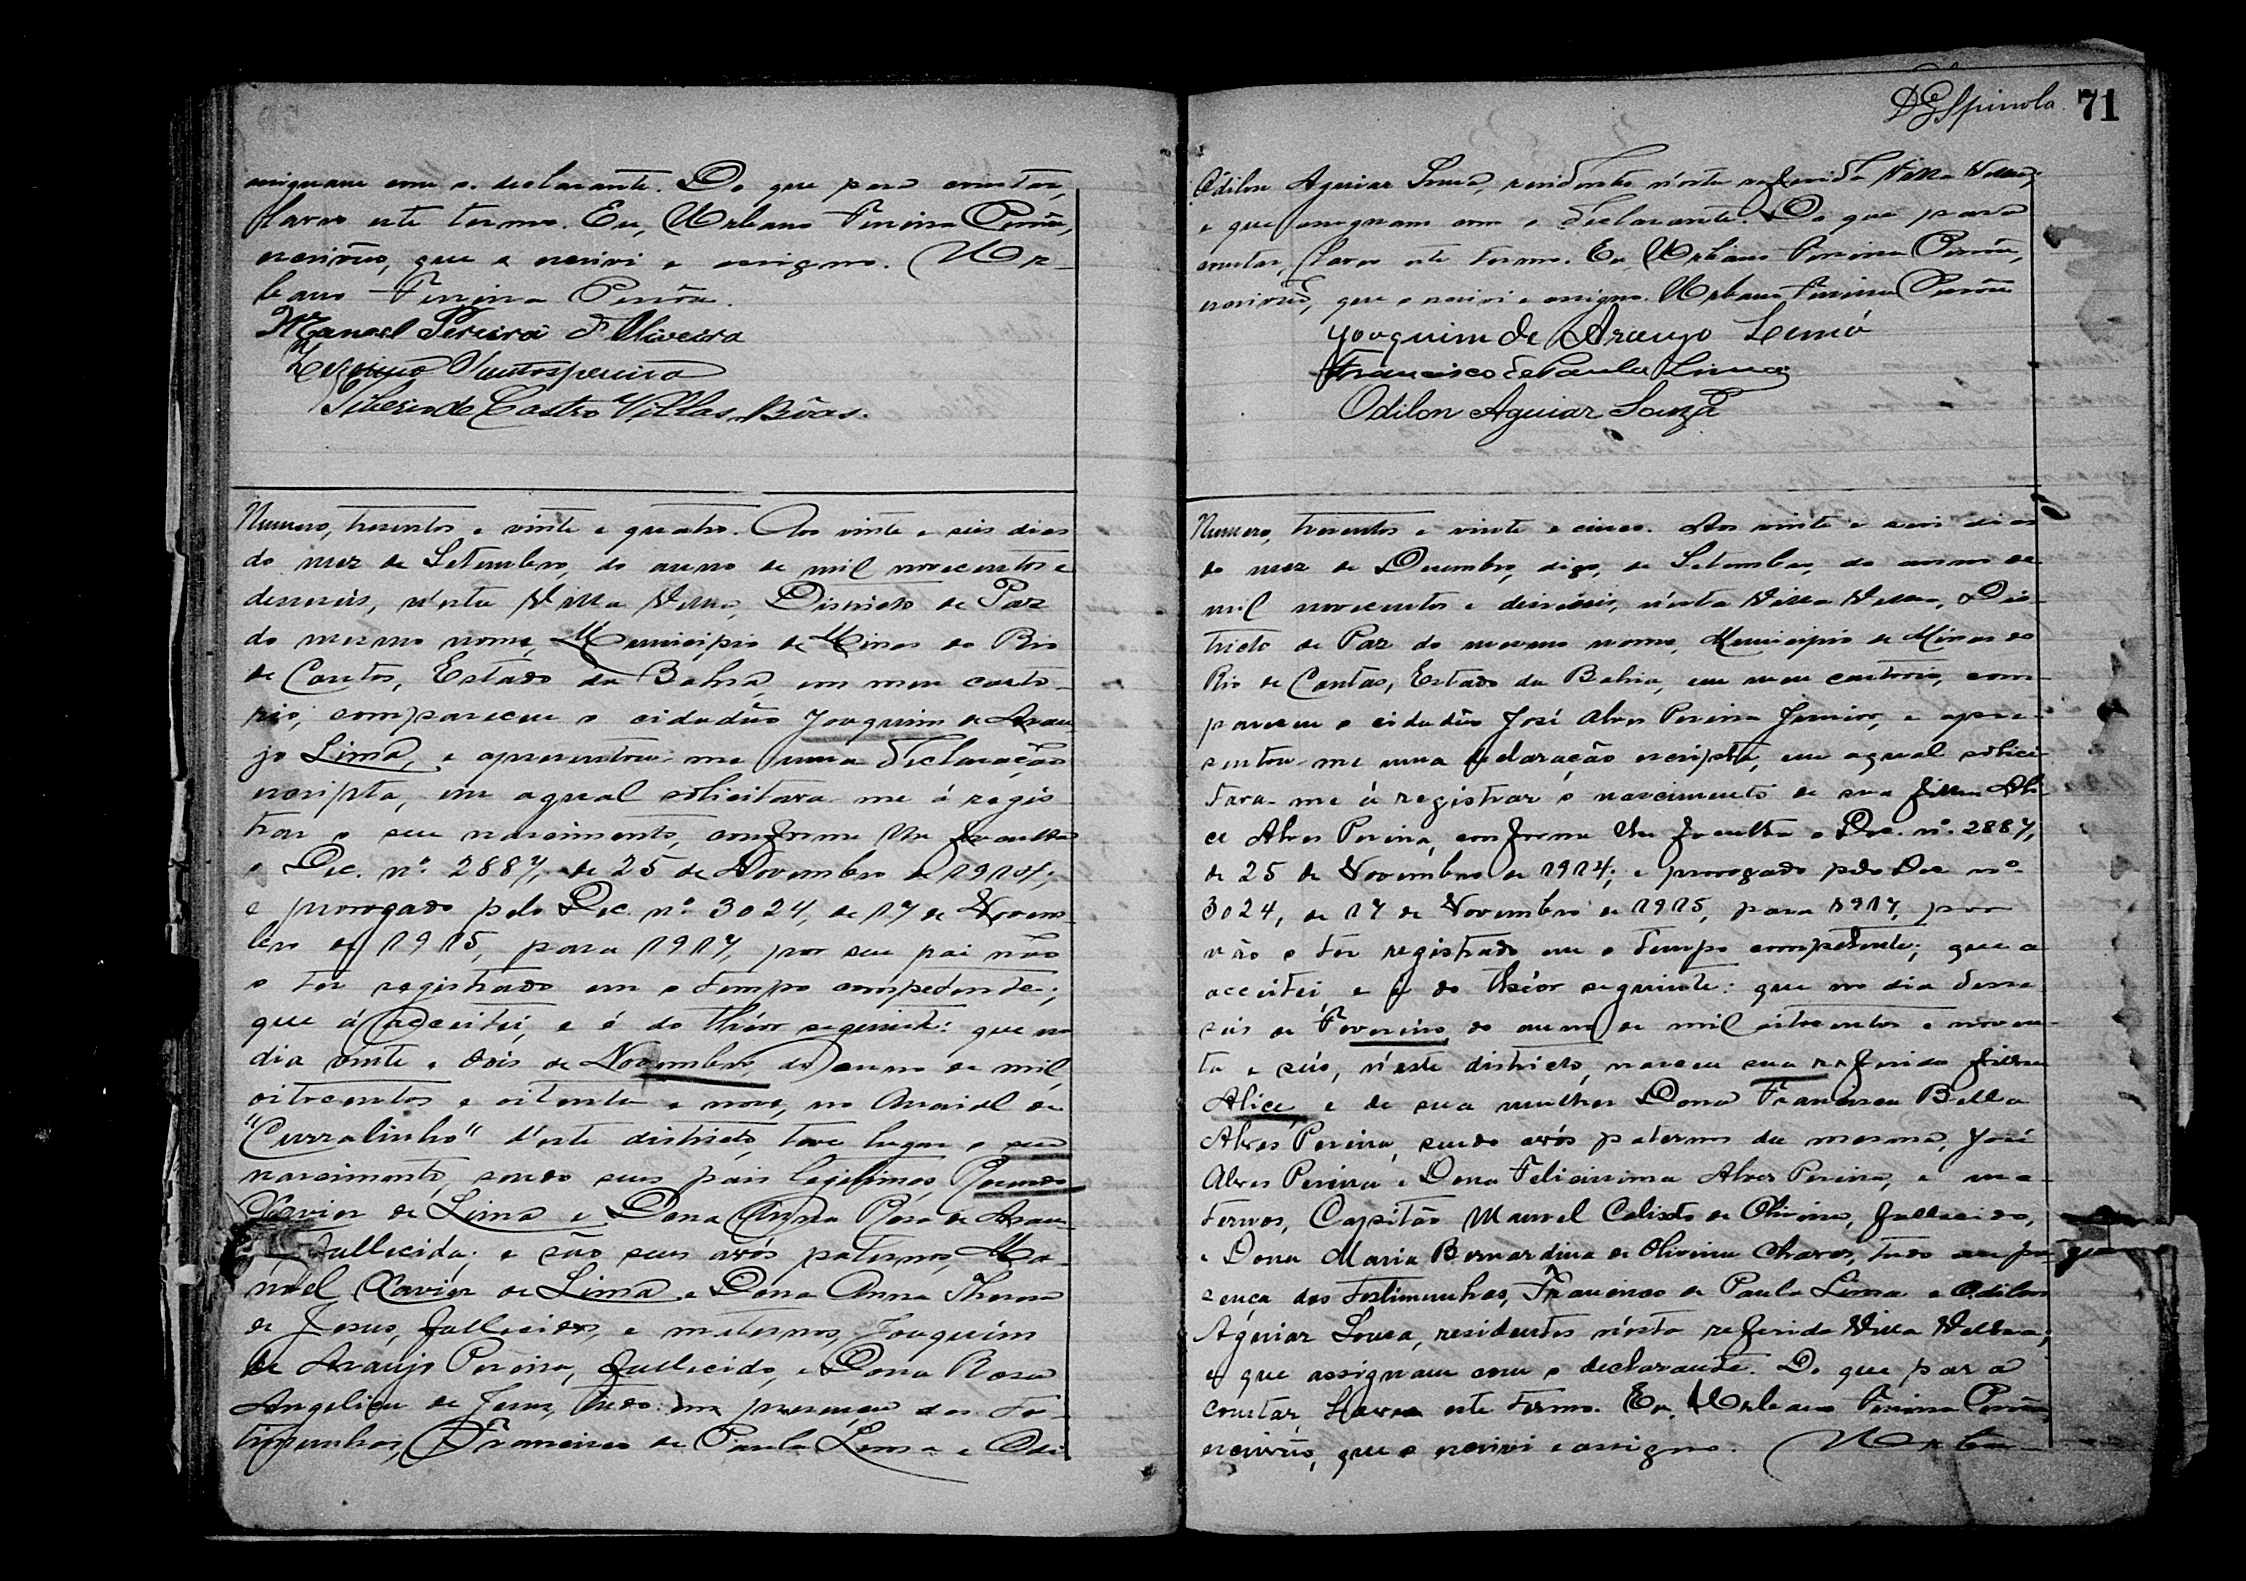 assignam com o declarante. Do que para constar,
lavro este termo. Eu, Urbano Ferreira Pessôa,
escrivão, que o escrivi e assigno. Ur-
bano Ferreira Pessôa.
Manoel Pereira d'Oliveira
Pereira
Tiberio de Castro Villas Bôas.
Numero, tresentos e vinte e quatro. Aos vinte e seis dias
do mez de Setembro, do anno de mil novecentos e
deseseis, n'esta Villa Velha, Districto de Paz
do mesmo nome, Municipio de Minas do Rio
de Contas, Estado da Bahia, em meu carto-
rio, compareceu o cidadão Joaquim de Arau-
jo Lima, e apresentou-me uma declaração
escripta, em a qual solicitava-me á regis
trar o seu nascimento, conforme lhe faculta
o Dec. nº 2887, de 25 de Novembro de 1914;
e prorogado pelo Dec. nº 3024, de 17 de Novem-
bro de 1915, para 1917, por seu pai não
o ter registrado em o tempo competente;
que á acceitei, e é do theôr seguinte: que no
dia vinte e dois de Novembro, do anno de mil
oitocentos e oitenta e nove, no Arraial de
"Curralinho" d'este districto, teve lugar o seu
nascimento, sendo seus pais legitimos,
Xavier de Lima e Dona Anna Rosa de Arau-
fallecida; e são seus avós paternos, Ma-
noel Xavier de Lima e Dona Anna Thereza
de Jesus, fallecidos, e maternos, Joaquim
de Araujo Pereira, fallecido, e Dona Rosa
Angelica de Jesus, tudo em presença das tes-
timunhas, Francisco de Paula Lima e Odi
DGSpinola 71
Odilon Aguiar Souza, residentes n'esta referida Villa Velha;
e que assignam com o declarante. Do que para
constar, lavro este termo. Eu, Urbano Ferreira Pessôa,
escrivão, que o escrivi e assigno. Urbano Ferreira Pessôa
Joaquim de Araujo Lima
Francisco de Paula Lima
Odilon Aguiar Souza
Numero, tresentos e vinte e cinco. Aos vinte e seis dias
do mez de Dezembro, digo, de Setembro, do anno de
mil novecentos e deseseis, n'esta Villa Velha, Dis-
tricto de Paz do mesmo nome, Municipio de Minas do
Rio de Contas, Estado da Bahia, em meu cartorio, com-
pareceu o cidadão José Alves Pereira Junior, e apre-
sentou-me uma declaração escripta, em a qual solici-
tava-me á registrar o nascimento de sua filha Ali-
ce Alves Pereira, conforme lhe faculta o Dec. nº 2887,
de 25 de Novembro de 1914; e prorogado pelo Dec nº
3024, de 17 de Novembro de 1915, para 1917, por
não o ter registrado em o tempo competente; que a
acceitei, e é do theôr seguinte: que no dia deze
seis de Fevereiro, do anno de mil oitocentos e noven-
ta e seis, n'este districto, nasceu sua referida filha
Alice, e de sua mulher Dona Francisca Bella
Alves Pereira, sendo avós paternos da mesma, José
Alves Pereira e Dona Felicissima Alves Pereira, e ma-
ternos, Capitão Manoel Calixto de Oliveira, fallecido,
e Dona Maria Bernardina de Oliveira Chaves, tudo em pre-
sença das testimunhas, Francisco de Paula Lima e Odilon
Aguiar Souza, residentes n'esta referida Villa Velha;
e que assignam com o declarante. Do que para
constar, lavro este termo. Eu, Urbano Ferreira Pessôa,
escrivão, que o escrivi e assigno. Urba-